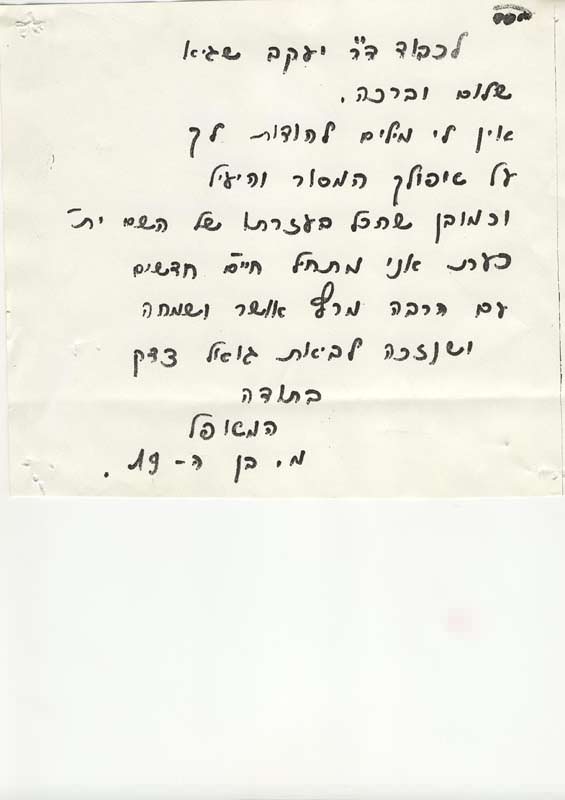 לכבוד ד"ר יעקב שגיא
שלום וברכה.
אין לי מילים להודות לך
על טיפולך המסור והיעיל
וכמובן שהכל בעזרתו של השם ית'
כעת אני מתחיל חיים חדשים
עם הרבה מרץ אושר ושמחה
ושנזכה לביאת גואל צדק
בתודה
המטופל
מ. בן ה-19.